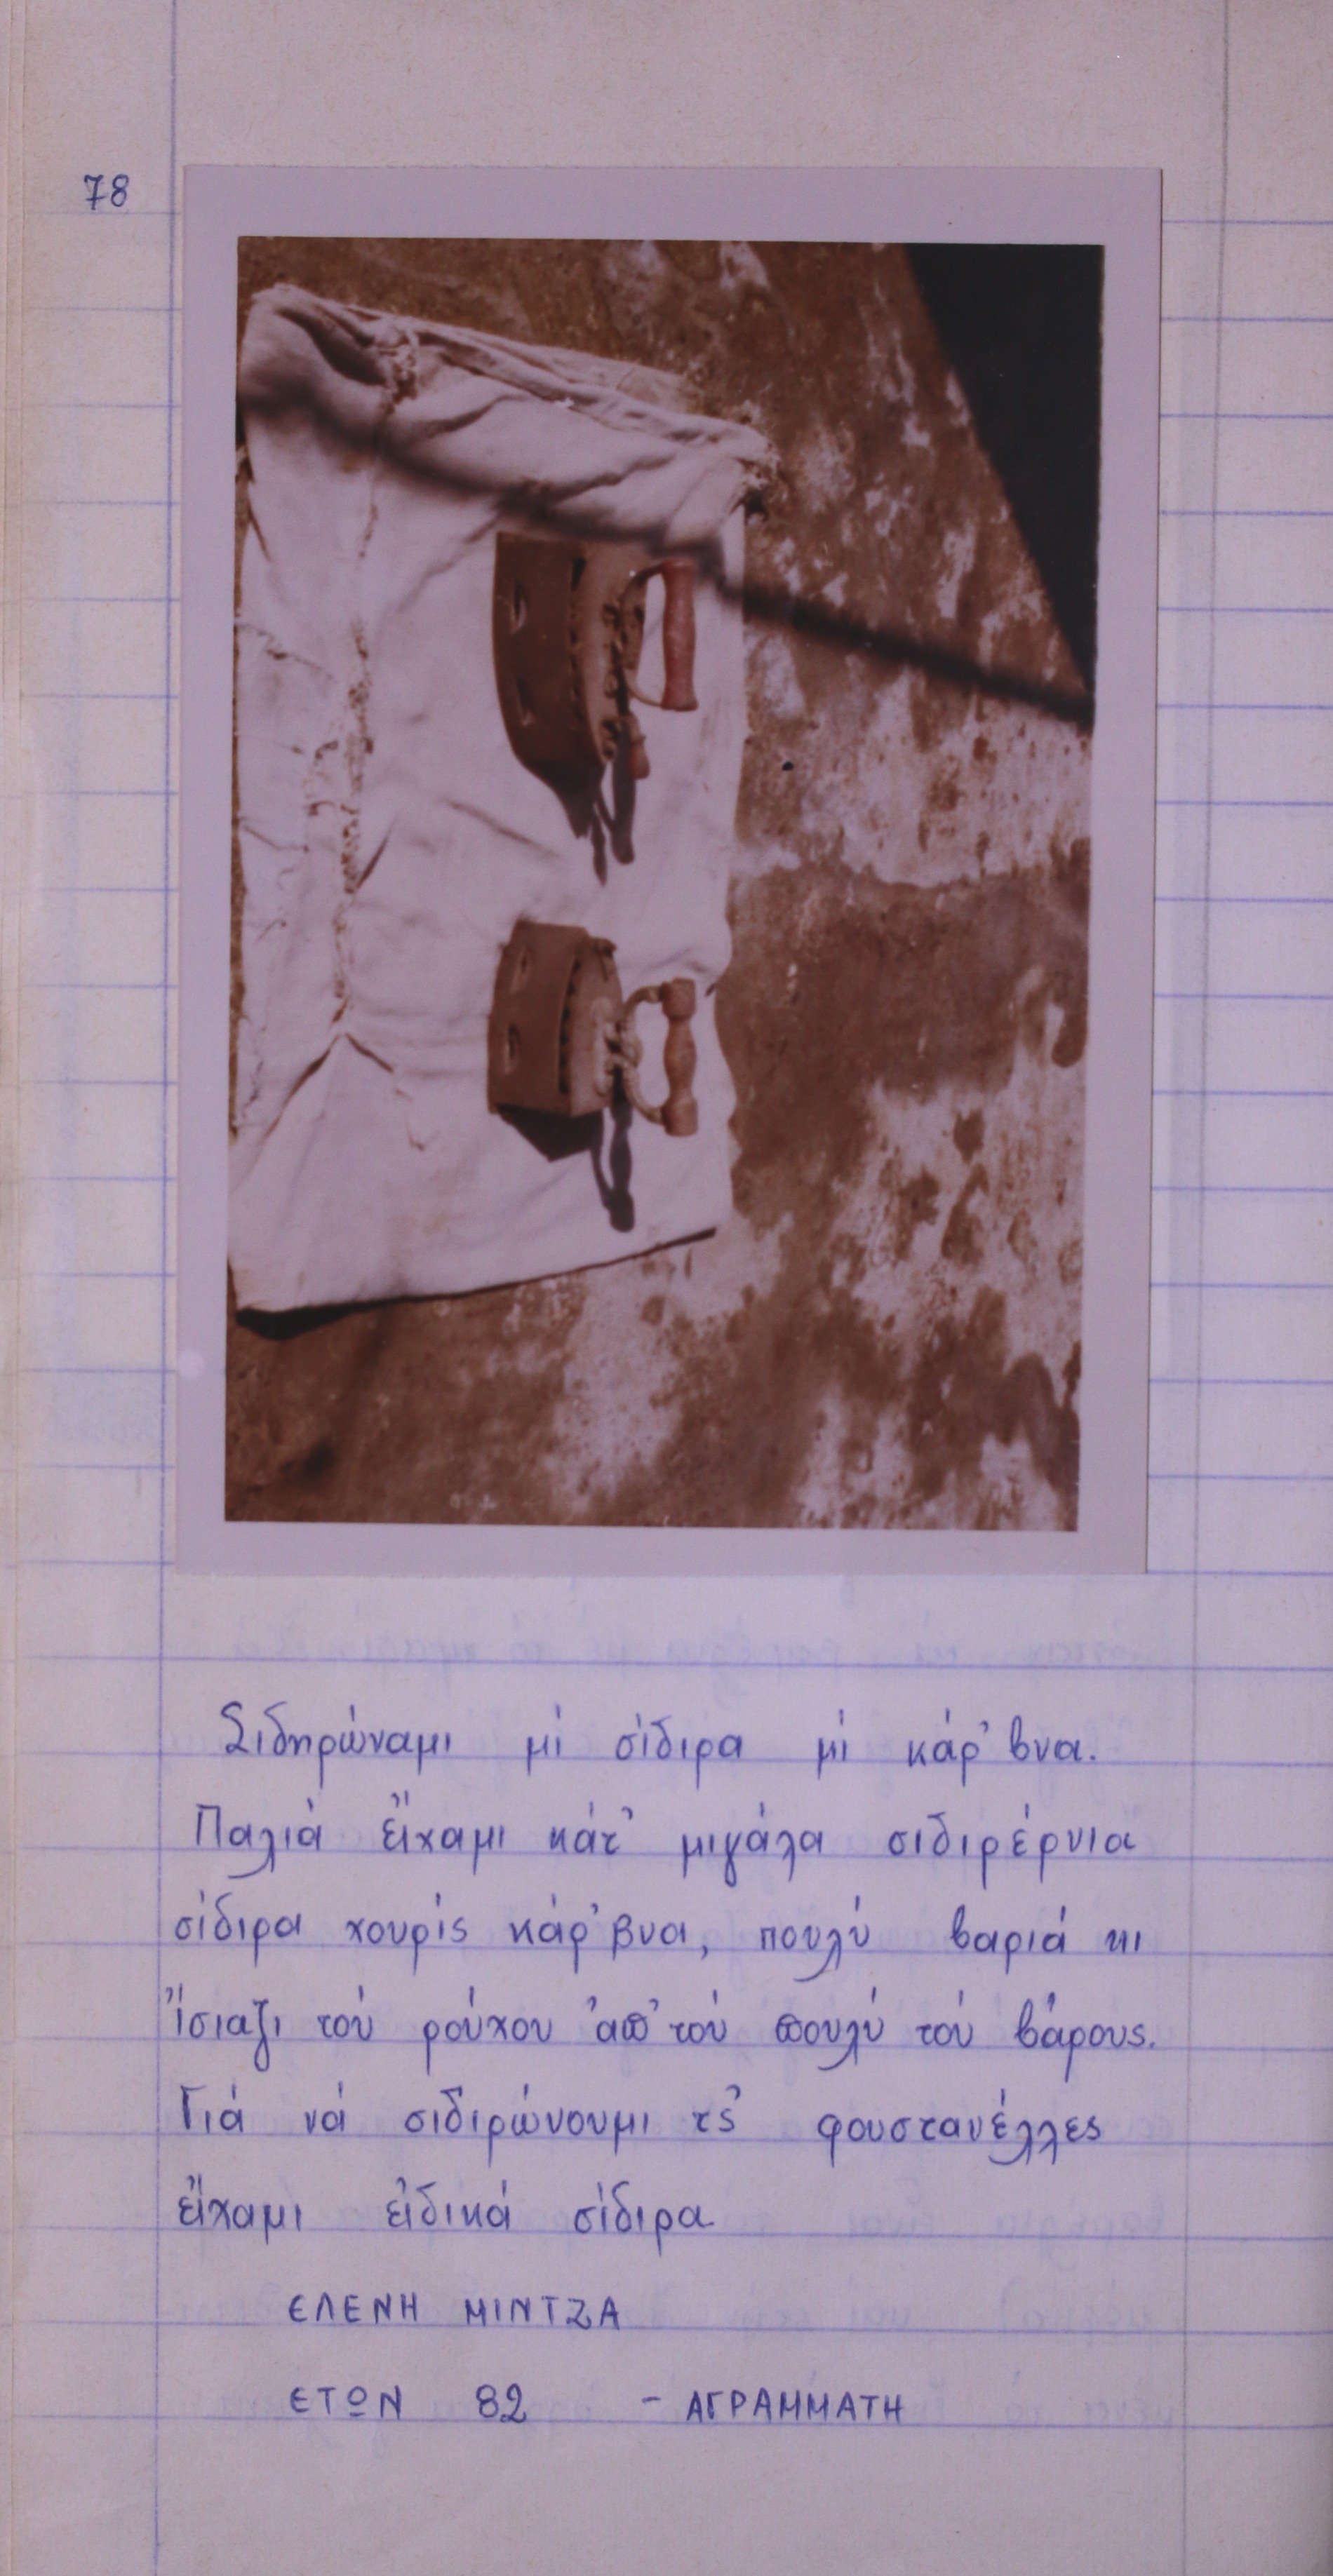 78
Σιδηρώναμι μί σίδιρα μί κάρ' βνα.
Παλιά εἴχαμι κάτ' μιγάλα σιδιρέρνια
σίδιρα χουρίς κάρ' βνα, πουλύ βαριά κι
ἴσιαζι τού ρούχου ἀπ' τού πουλύ τού βάρους.
Γιά νά σιδιρώνουμι τς' φουστανέλλες
εἴχαμι εἰδικά σίδιρα
ΕΛΕΝΗ ΜΙΝΤΖΑ
ΕΤΩΝ 82 - ΑΓΡΑΜΜΑΤΗ